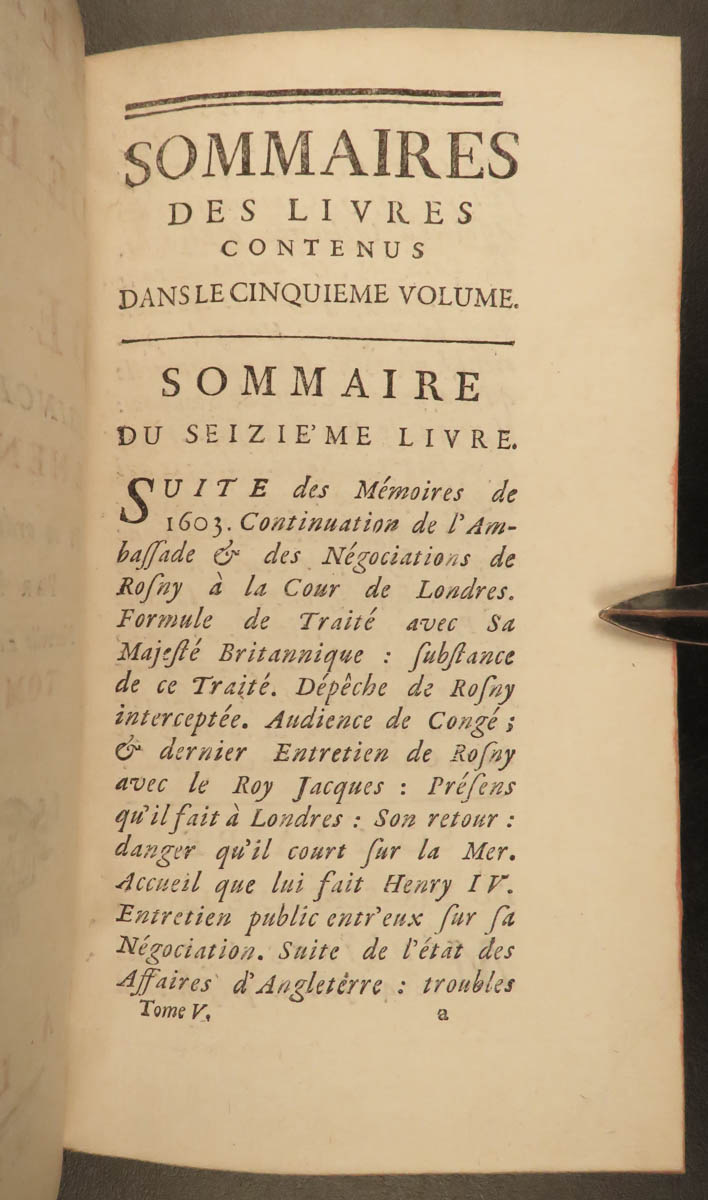 SOMMAIRES
DES LIVRES
CONTENUS
DANS LE CINQUIEME VOLUME.
SOMMAIRE
DU SEIZIE'ME LIVRE.
SUITE des Mémoires de
1603. Continuation de l'Am-
baſſade & des Négociations de
Roſny à la Cour de Londres.
Formule de Traité avec Sa
Majeſté Britannique : ſubſtance
de ce Traité. Dépêche de Roſny
interceptée. Audience de Congé ;
& dernier Entretien de Roſny
avec le Roy Jacques : Préſens
qu'il fait à Londres : Son retour :
danger qu'il court ſur la Mer.
Accueil que lui fait Henry IV.
Entretien public entr'eux ſur ſa
Négociation. Suite de l'état des
Affaires d'Angletêrre : troubles
Tome V. a